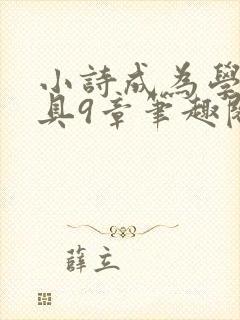 小詩成為學
具9章筆趣閣
薛立